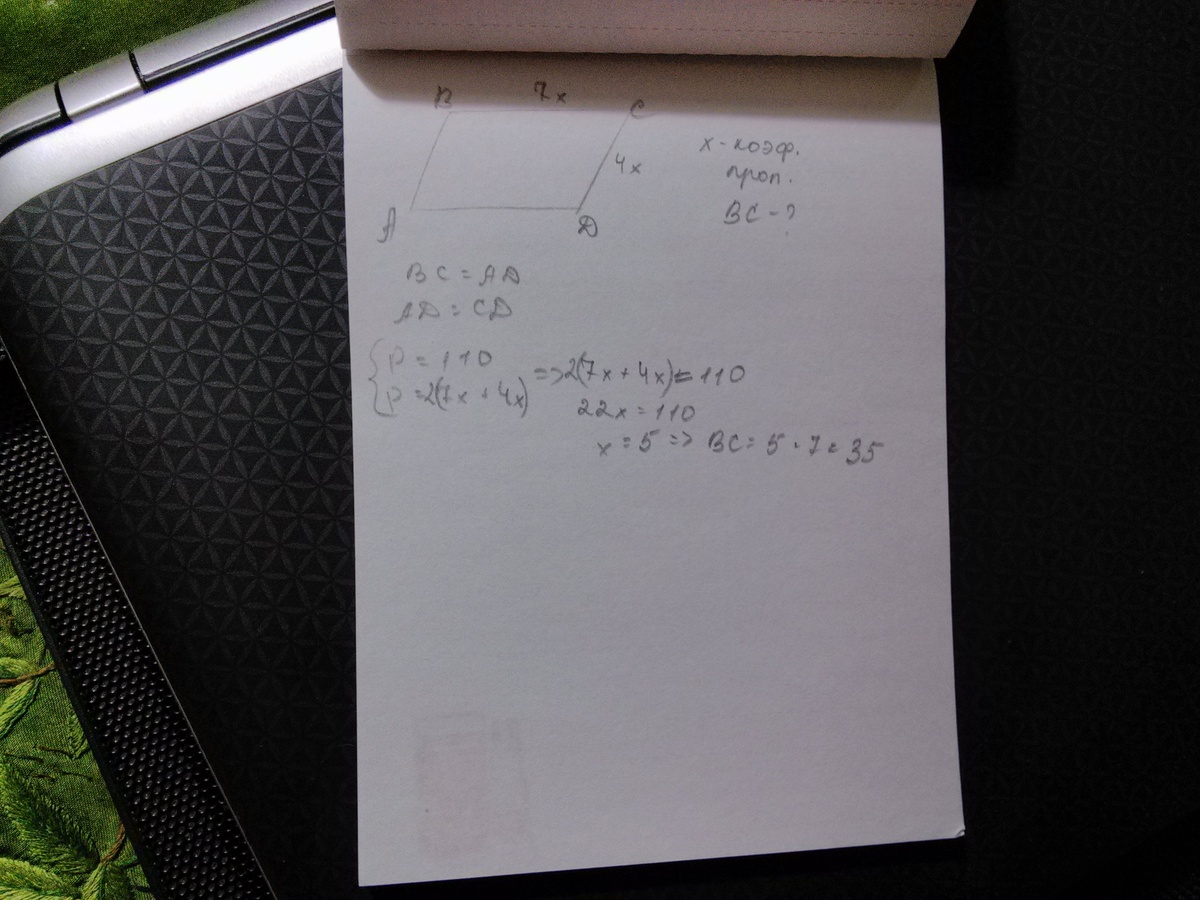 B 7x C
4x
A D
x - коэф.
проп.
BC - ?
BC = AD
AD = CD
P = 110
P = 2(7x + 4x) => 2(7x + 4x) = 110
22x = 110
x = 5 => BC = 5 · 7 = 35